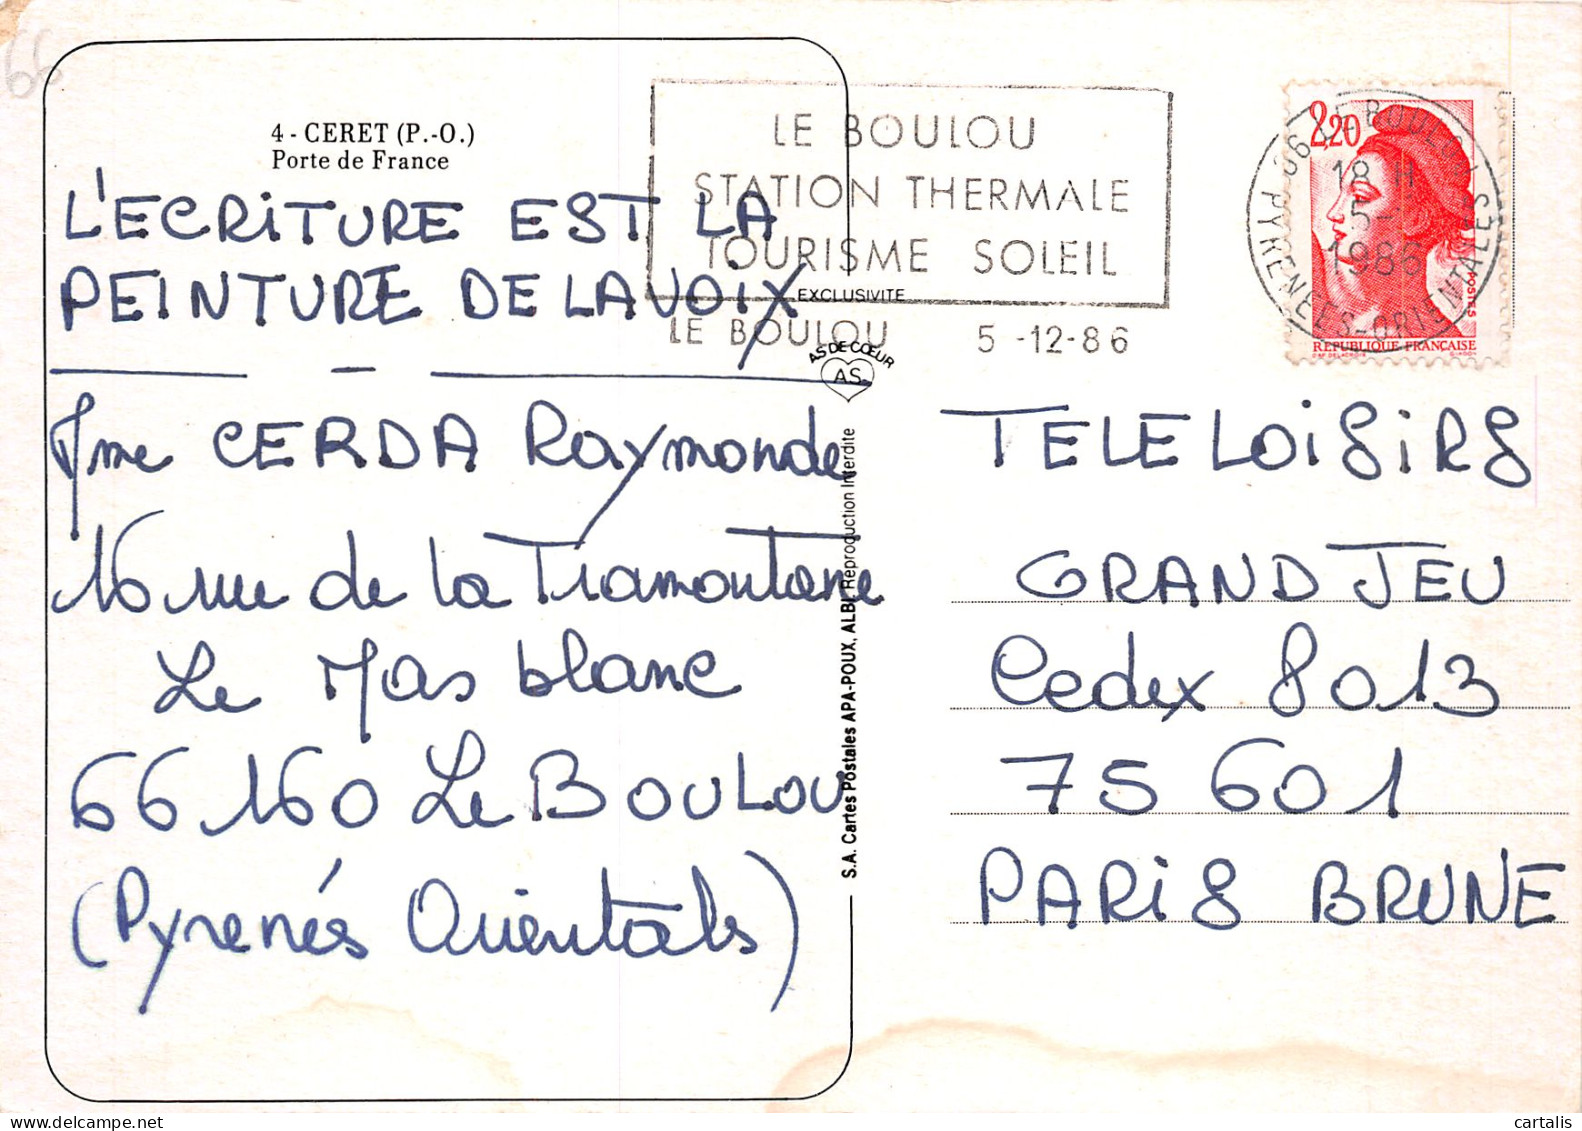 66
4 - CERET (P.-O.)
Porte de France
L'ECRITURE EST LA
PEINTURE DE LA VOIX
Mme CERDA Raymonde
16 rue de la Tramontane
Le Mas blanc
66160 Le BOULOU
(Pyrenés Orientales)
LE BOULOU
STATION THERMALE
TOURISME SOLEIL
LE BOULOU 5 -12-86
EXCLUSIVITE
AS DE CŒUR
AS.
S.A. Cartes Postales APA-POUX, ALBI. Reproduction Interdite
2,20
POSTES
REPUBLIQUE FRANÇAISE
66 LE BOULOU
18 H
5-
1986
PYRENEES-ORIENTALES
TELE LOISIRS
GRAND JEU
Cedex 8013
75 601
PARIS BRUNE
cartalis